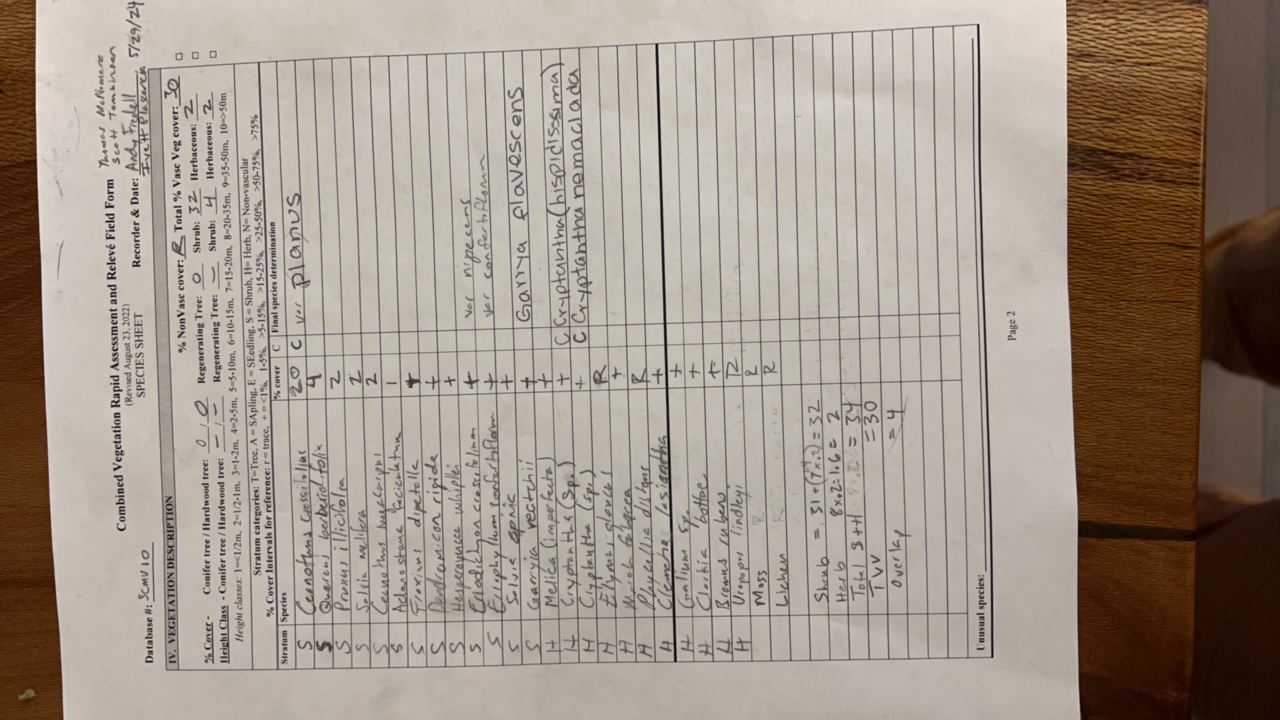 Combined Vegetation Rapid Assessment and Relevé Field Form
(Revised August 23, 2022)
SPECIES SHEET
Thomas McNamara
Scott Tomlinson
Database #: SCMV10
Recorder & Date: Andy Fredell 5/29/24
IV. VEGETATION DESCRIPTION
% NonVasc cover: R Total % Vasc Veg cover: 30
% Cover - Conifer tree / Hardwood tree: 0 / 0 Regenerating Tree: 0 Shrub: 32 Herbaceous: 2
Height Class - Conifer tree / Hardwood tree: - / - Regenerating Tree: - Shrub: 4 Herbaceous: 2
Height classes: 1=<1/2m, 2=1/2-1m, 3=1-2m, 4=2-5m, 5=5-10m, 6=10-15m, 7=15-20m, 8=20-35m, 9=35-50m, 10=>50m
Stratum categories: T=Tree, A = SApling, E = SEedling, S = Shrub, H= Herb, N= Non-vascular
% Cover Intervals for reference: r = trace, + = <1%, 1-5%, >5-15%, >15-25%, >25-50%, >50-75%, >75%
Stratum Species % cover C Final species determination
S Ceanothus crassifolius 20 C var planus
S Quercus berberidifolia 4
S Prunus ilicifolia 2
S Salvia mellifera 2
S Ceanothus 2
S Adenostoma fasciculatum 1
S Fraxinus dipetala +
S Dendromecon rigida +
S Hesperoyucca whipplei +
S Eriodictyon crassifolium + var nigrescens
S Eriophyllum confertiflorum + var confertiflorum
S Salvia apiana +
S Garrya veatchii + Garrya flavescens
H Melica (imperfecta) +
H Cryptantha (sp.) + C Cryptantha (hispidissima)
H Cryptantha (sp.) + C Cryptantha nemaclada
H Elymus glaucus R
H +
H Phacelia distans R
H Clematis lasiantha +
H Galium sp. +
H Clarkia bottae +
H Bromus rubens +
H Uropappus lindleyi R
Moss R
Lichen R
Shrub = 31+(7x.2)=32
Herb 8x.2=1.6= 2
Total S+H = 34
TVV = 30
Overlap = 4
Unusual species:
Page 2